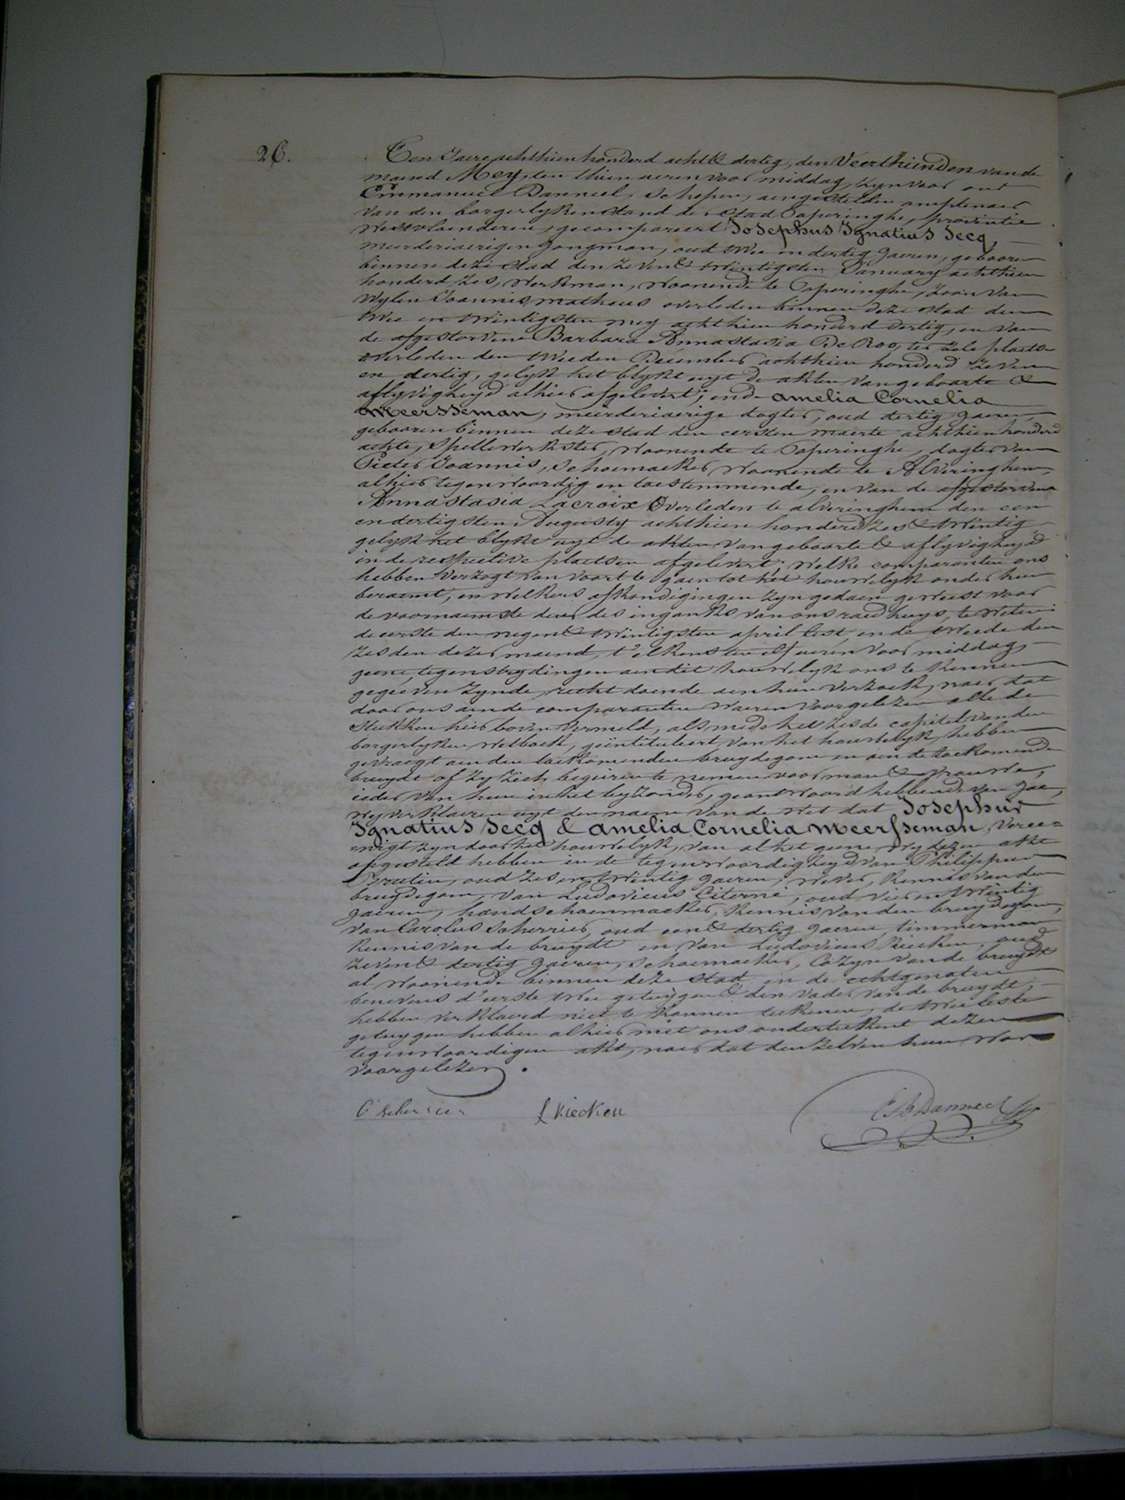 26.
Een Jaere achthien honderd acht & dertig, den Veerthienden van de
maend Mey, ten thien ueren voor middag, zyn voor ons
Emmanuel Danneel, Schepen, aengestelden amptenaer
van den borgerlyken stand der stad Poperinghe, provintie
Westvlaenderen, gecompareert Josephus Ignatius Secq,
meerderjaerigen jongman, oud twee en dertig jaeren, geboren
binnen deze stad den zeven & twintigsten January achthien
honderd zes, werkman, woonende te Poperinghe, zoon van
wylen Joannis matheus overleden binnen deze stad den
twee en twintigsten mey achthien honderd dertig, en van
de afgestorvene Barbara Annastasia De Roo, ter zele plaetse
overleden den tweeden December achthien honderd zeven
en dertig, gelyk het blykt uyt de akten van geboorte &
aflyvigheyd alhier afgelevert; ende Amelia Cornelia
Meersseman, meerderjaerige dogter, oud dertig jaeren,
gebooren binnen deze stad den eersten maerte achthien honderd
achte, spellewerkster, woonende te Poperinghe, dogter van
Pieter Joannis, schoenmaeker, woonende te Alveringhem,
alhier tegenwoordig en toestemmende, en van de afgestorvene
Annastasia Lacroix overleden te alveringhem den een
en dertigsten Augusty achthien honderd zes & twintig
gelyk het blykt uyt de akten van geboorte & aflyvigheyd
in de respective plaetsen afgelevert; welke comparanten ons
hebben verzogt van voort te gaen tot het houwelyk onder hun
beraemt, en welkers afkondigingen zyn gedaen geweest voor
de voornaemste deur des ingankz van ons raedhuys, te weten:
de eerste den negen & twintigsten april lest, en de tweede den
zesden dezer maend, t'elkens ten elf ueren voor middag,
geene tegenstrydingen aen dit houwelyk ons te kennen
gegeeven zynde, recht doende aen hun verzoek, naer dat
door ons aen de comparanten waeren voorgelezen alle de
stukken hier boven vermeld, als mede het zesde capitel van den
borgerlyken Wetboek, geintituleert, van het houwelyk, hebben
gevraegt aen den toekomenden bruydegom en aen de toekomende
bruydt of zy zich begeiren te nemen voor man & vrouwe,
ieder van hun in het byzonder, geantwoord hebbende van Jae,
wy verklaeren uyt den naem van de wet dat Josephus
Ignatius Secq & Amelia Cornelia Meersseman, veree=
=nigt zyn door het houwelyk, van al het gene wy dezen akt
opgesteld hebben in de tegenwoordigheyd van Philippus
oud zes en twintig jaeren, wever, kennis van den
bruydegom, van Ludovicus Citerne, oud vier en twintig
jaeren, handschoenmaeker, kennis van den bruydegom,
van Carolus Scherrier, oud een & dertig jaeren, timmerman
kennis van de bruydt en van Ludovicus Kiecken, oud
zeven & dertig jaeren, schoenmaeker, Cozyn van de bruydt
al woonende binnen deze stad, en de echtgenoten
benevens d'eerste twee getuygen & den vader van de bruydt,
hebben verklaerd niet te konnen teekenen, de twee leste
getuygen hebben alhier met ons onderteekent dezen
tegenwoordigen akt, naer dat den zelven hun wierd
voorgelezen.
C Scherrier L Kiecken Danneel